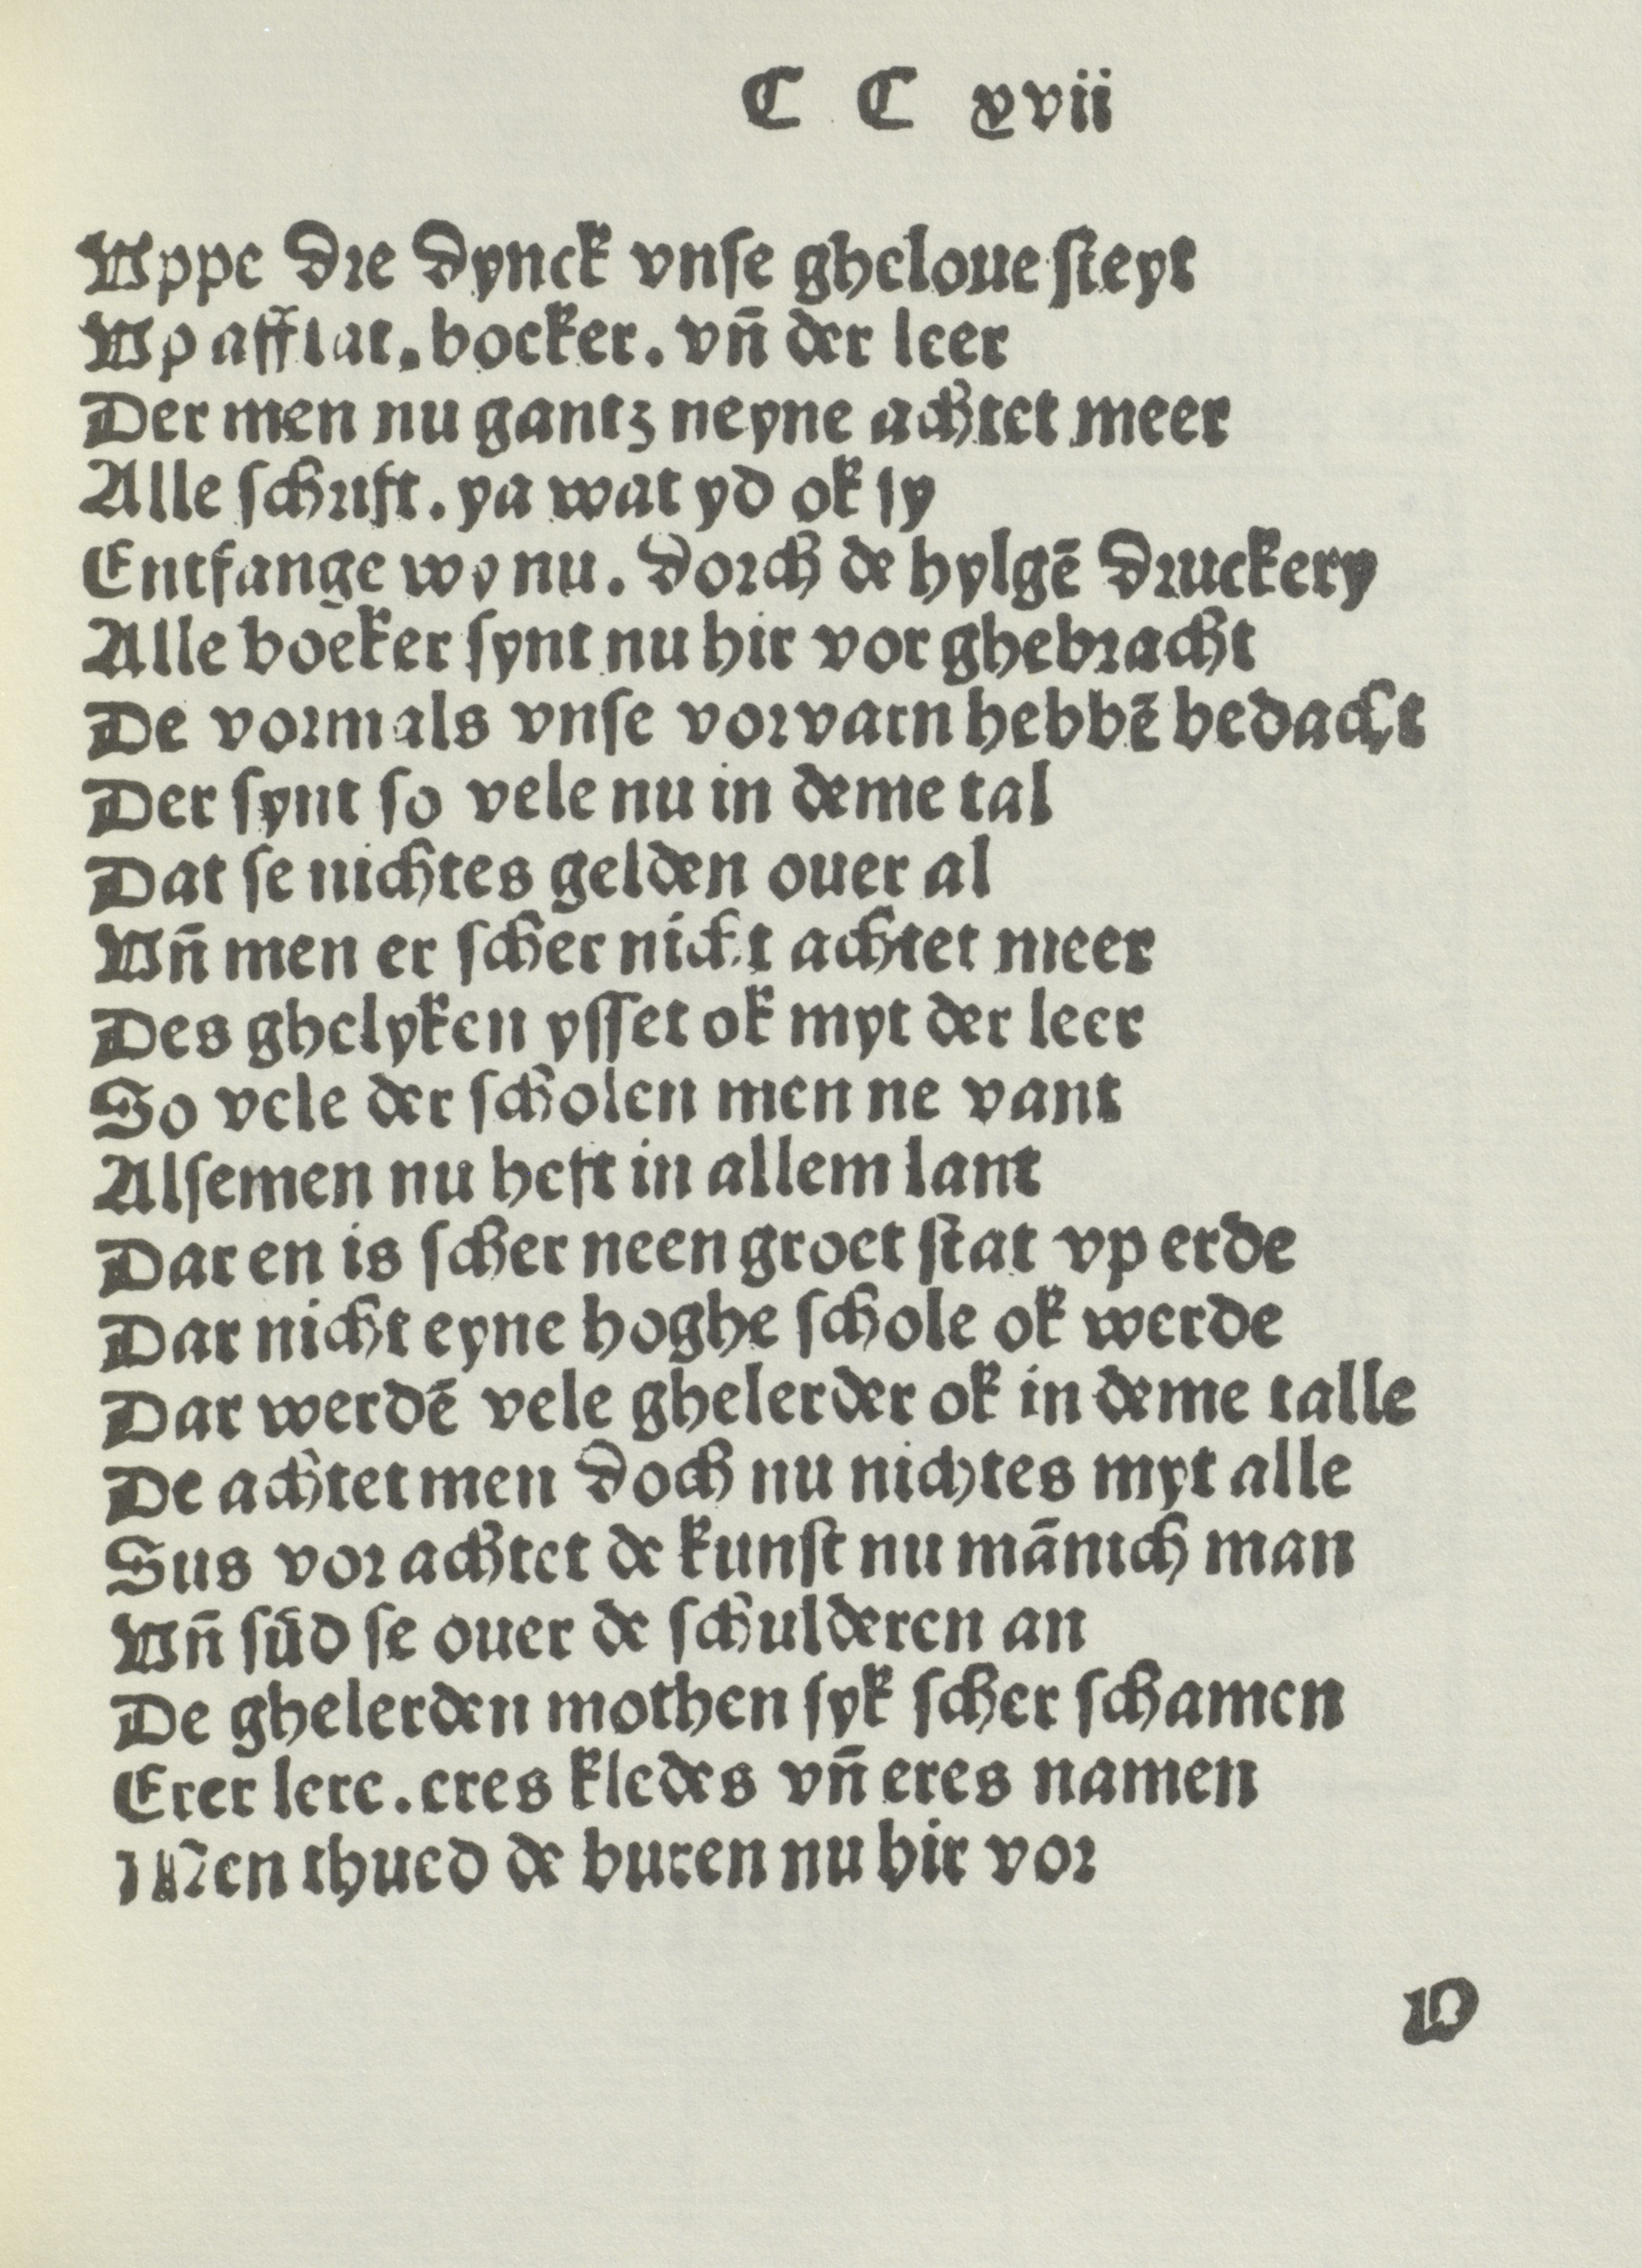 C C xvii
Vppe dre dynck vnse gheloue steyt
Vp afflat. boeker. vn̄ der leer
Der men nu gantz neyne achtet meer
Alle schrift. ya wat yd ok sy
Entfange wy nu. dorch de hylgē druckery
Alle boeker synt nu hir vor ghebracht
De vormals vnse vorvarn hebbē bedacht
Der synt so vele nu in deme tal
Dat se nichtes gelden ouer al
Vn̄ men er scher nicht achtet meer
Des ghelyken ysset ok myt der leer
So vele der scholen men ne vant
Alsemen nu heft in allem lant
Dar en is scher neen groet stat vp erde
Dar nicht eyne hoghe schole ok werde
Dar werdē vele ghelerder ok in deme talle
De achtet men doch nu nichtes myt alle
Sus vor achtet de kunst nu mānich man
Vn̄ sūd se ouer de schulderen an
De ghelerden mothen syk scher schamen
Erer lere. eres kledes vn̄ eres namen
Men thued de buren nu hir vor